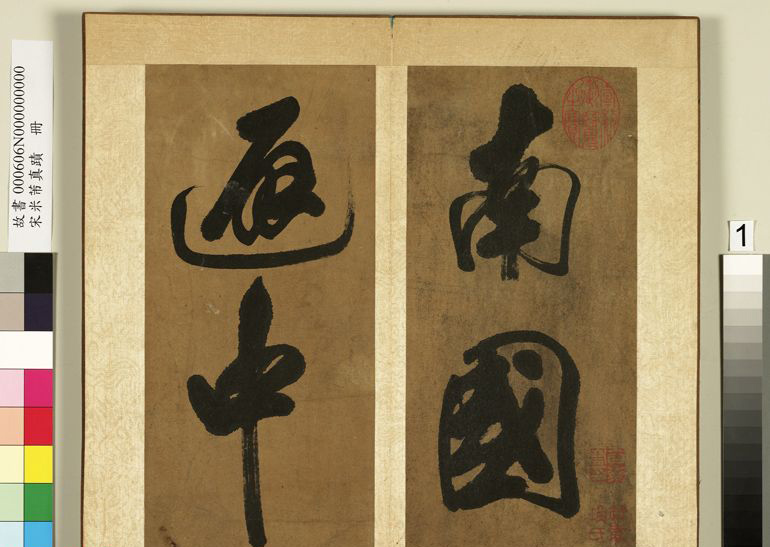 南國
中
故書 000606N000000000
宋米芾真蹟 冊
1